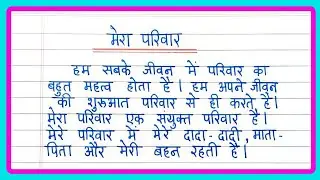 मेरा परिवार
हम सबके जीवन में परिवार का
बहुत महत्व होता है। हम अपने जीवन
की शुरूआत परिवार से ही करते है।
मेरा परिवार एक संयुक्त परिवार है।
मेरे परिवार में मेरे दादा-दादी, माता-
पिता और मेरी बहन रहती है।